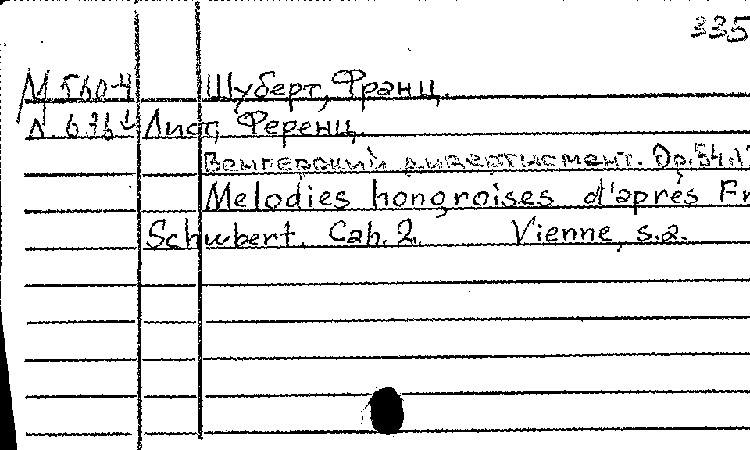 335
М 560-4 Шуберт, Франц.
Л. 636 Лист, Ференц.
Венгерский дивертисмент. Op. 54.
Melodies hongroises d'après Fr
Schubert. Cah. 2. Vienne, s.a.